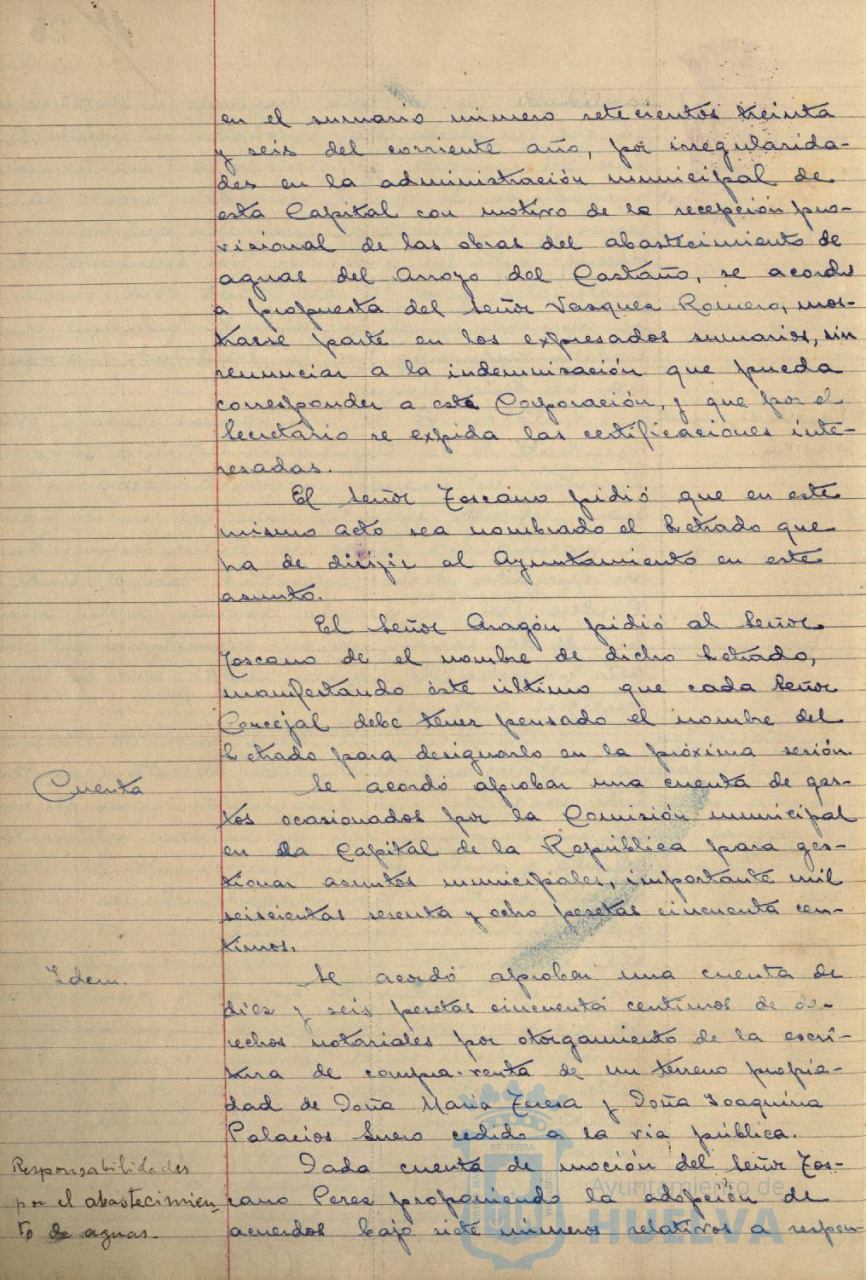 en el sumario número setecientos treinta
y seis del corriente año, por irregularida-
des en la administración municipal de
esta Capital con motivo de la recepción pro-
visional de las obras del abastecimiento de
aguas del Arroyo del Castaño, se acordó
a propuesta del Señor Vasquez Romero, mos-
trarse parte en los expresados sumarios, sin
renunciar a la indemnización que pueda
corresponder a esta Corporación, y que por el
Secretario se expida las certificaciones inte-
resadas.
El Señor Toscano pidió que en este
mismo acto sea nombrado el Letrado que
ha de dirijir al Ayuntamiento en este
asunto.
El Señor Aragón pidió al Señor
Toscano de el nombre de dicho Letrado,
manifestando éste último que cada Señor
Concejal debe tener pensado el nombre del
Letrado para designarlo en la próxima sesión.
Cuenta
Se acordó aprobar una cuenta de gas-
tos ocasionados por la Comisión municipal
en la Capital de la República para ges-
tionar asuntos municipales, importante mil
seiscientas sesenta y ocho pesetas cincuenta cen-
timos.
Idem.
Se acordó aprobar una cuenta de
diez y seis pesetas cincuenta centimos de de-
rechos notariales por otorgamiento de la escri-
tura de compra-venta de un terreno propie-
dad de Doña Maria Teresa y Doña Joaquina
Palacios Suero cedido a la via pública.
Responsabilidades
por el abastecimien-
to de aguas.
Dada cuenta de moción del Señor Tos-
cano Perez proponiendo la adopción de
acuerdos bajo siete números relativos a respon-
Ayuntamiento de
HUELVA